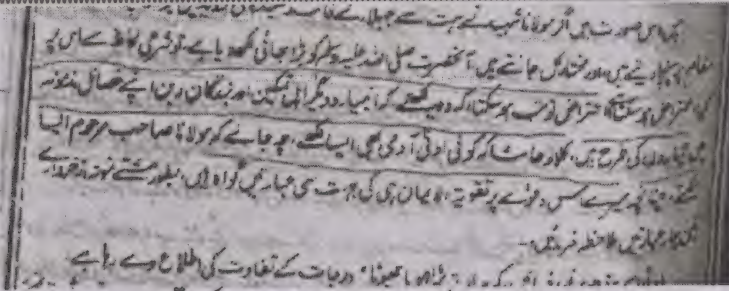 پس اس صورت میں اگر مولانا شہید نے بہت سے جہلا کے
مقام پر پہنچا دیتے ہیں اور مختار کل جانتے ہیں آنحضرت صلی اللہ علیہ وسلم کو بڑا بھائی لکھ دیا ہے تو شرعی لحاظ سے اس پر
کیا اعتراض ہو سکتا ہے اعتراض تو جب ہو سکتا کہ وہ یہ لکھتے کہ انبیاء و دیگر الٰہی نیکین اور بندگان دین اپنے خصائل مذمومہ
میں چماروں کی طرح ہیں، کلا و حاشا کہ کوئی ادنیٰ آدمی بھی ایسا لکھے، چہ جائے کہ مولانا صاحب مرحوم ایسا
لکھتے، چنانچہ میرے اس دعوے پر تقویۃ الایمان ہی کی بہت سی عبارتیں گواہ ہیں، بطور مشتے نمونہ از خروارے
عبارتیں ملاحظہ فرمائیں۔
بڑا اور چھوٹا درجات کے تفاوت کی اطلاع دے رہا ہے